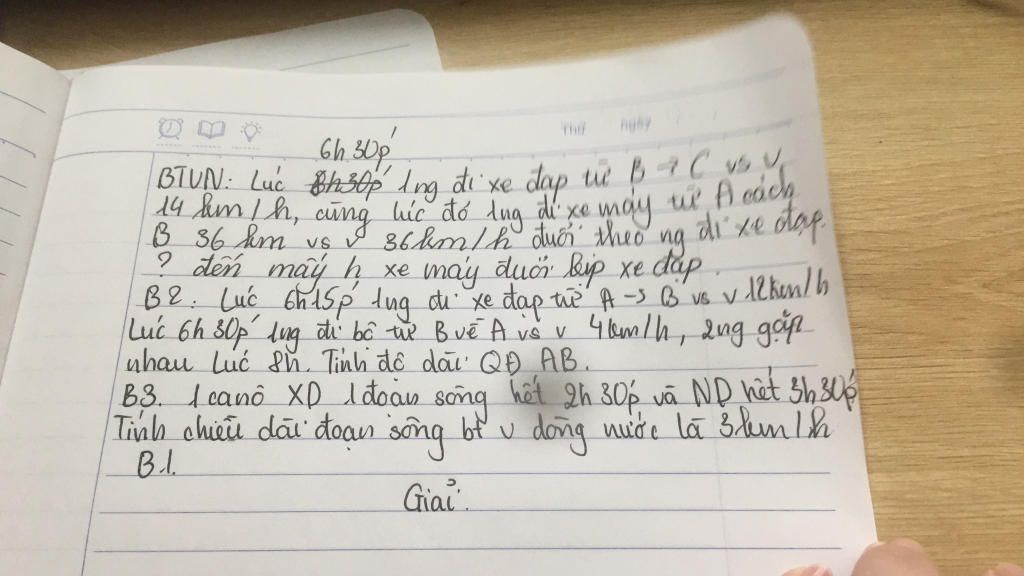 Thứ ngày
6h 30p'
BTVN: Lúc 8h30p' 1ng đi xe đạp từ B → C vs v
14 km/h, cùng lúc đó 1ng đi xe máy từ A cách
B 36 km vs v 36km/h đuổi theo ng đi xe đạp.
? đến mấy h xe máy đuổi kịp xe đạp.
B2. Lúc 6h15p' 1ng đi xe đạp từ A → B vs v 12km/h
Lúc 6h 30p' 1ng đi bộ từ B về A vs v 4km/h, 2ng gặp
nhau lúc 8h. Tính độ dài QĐ AB.
B3. 1 canô XD 1 đoạn sông hết 2h 30p' và ND hết 3h 30p'
Tính chiều dài đoạn sông bt v dòng nước là 3km/h
B.1.
Giải: